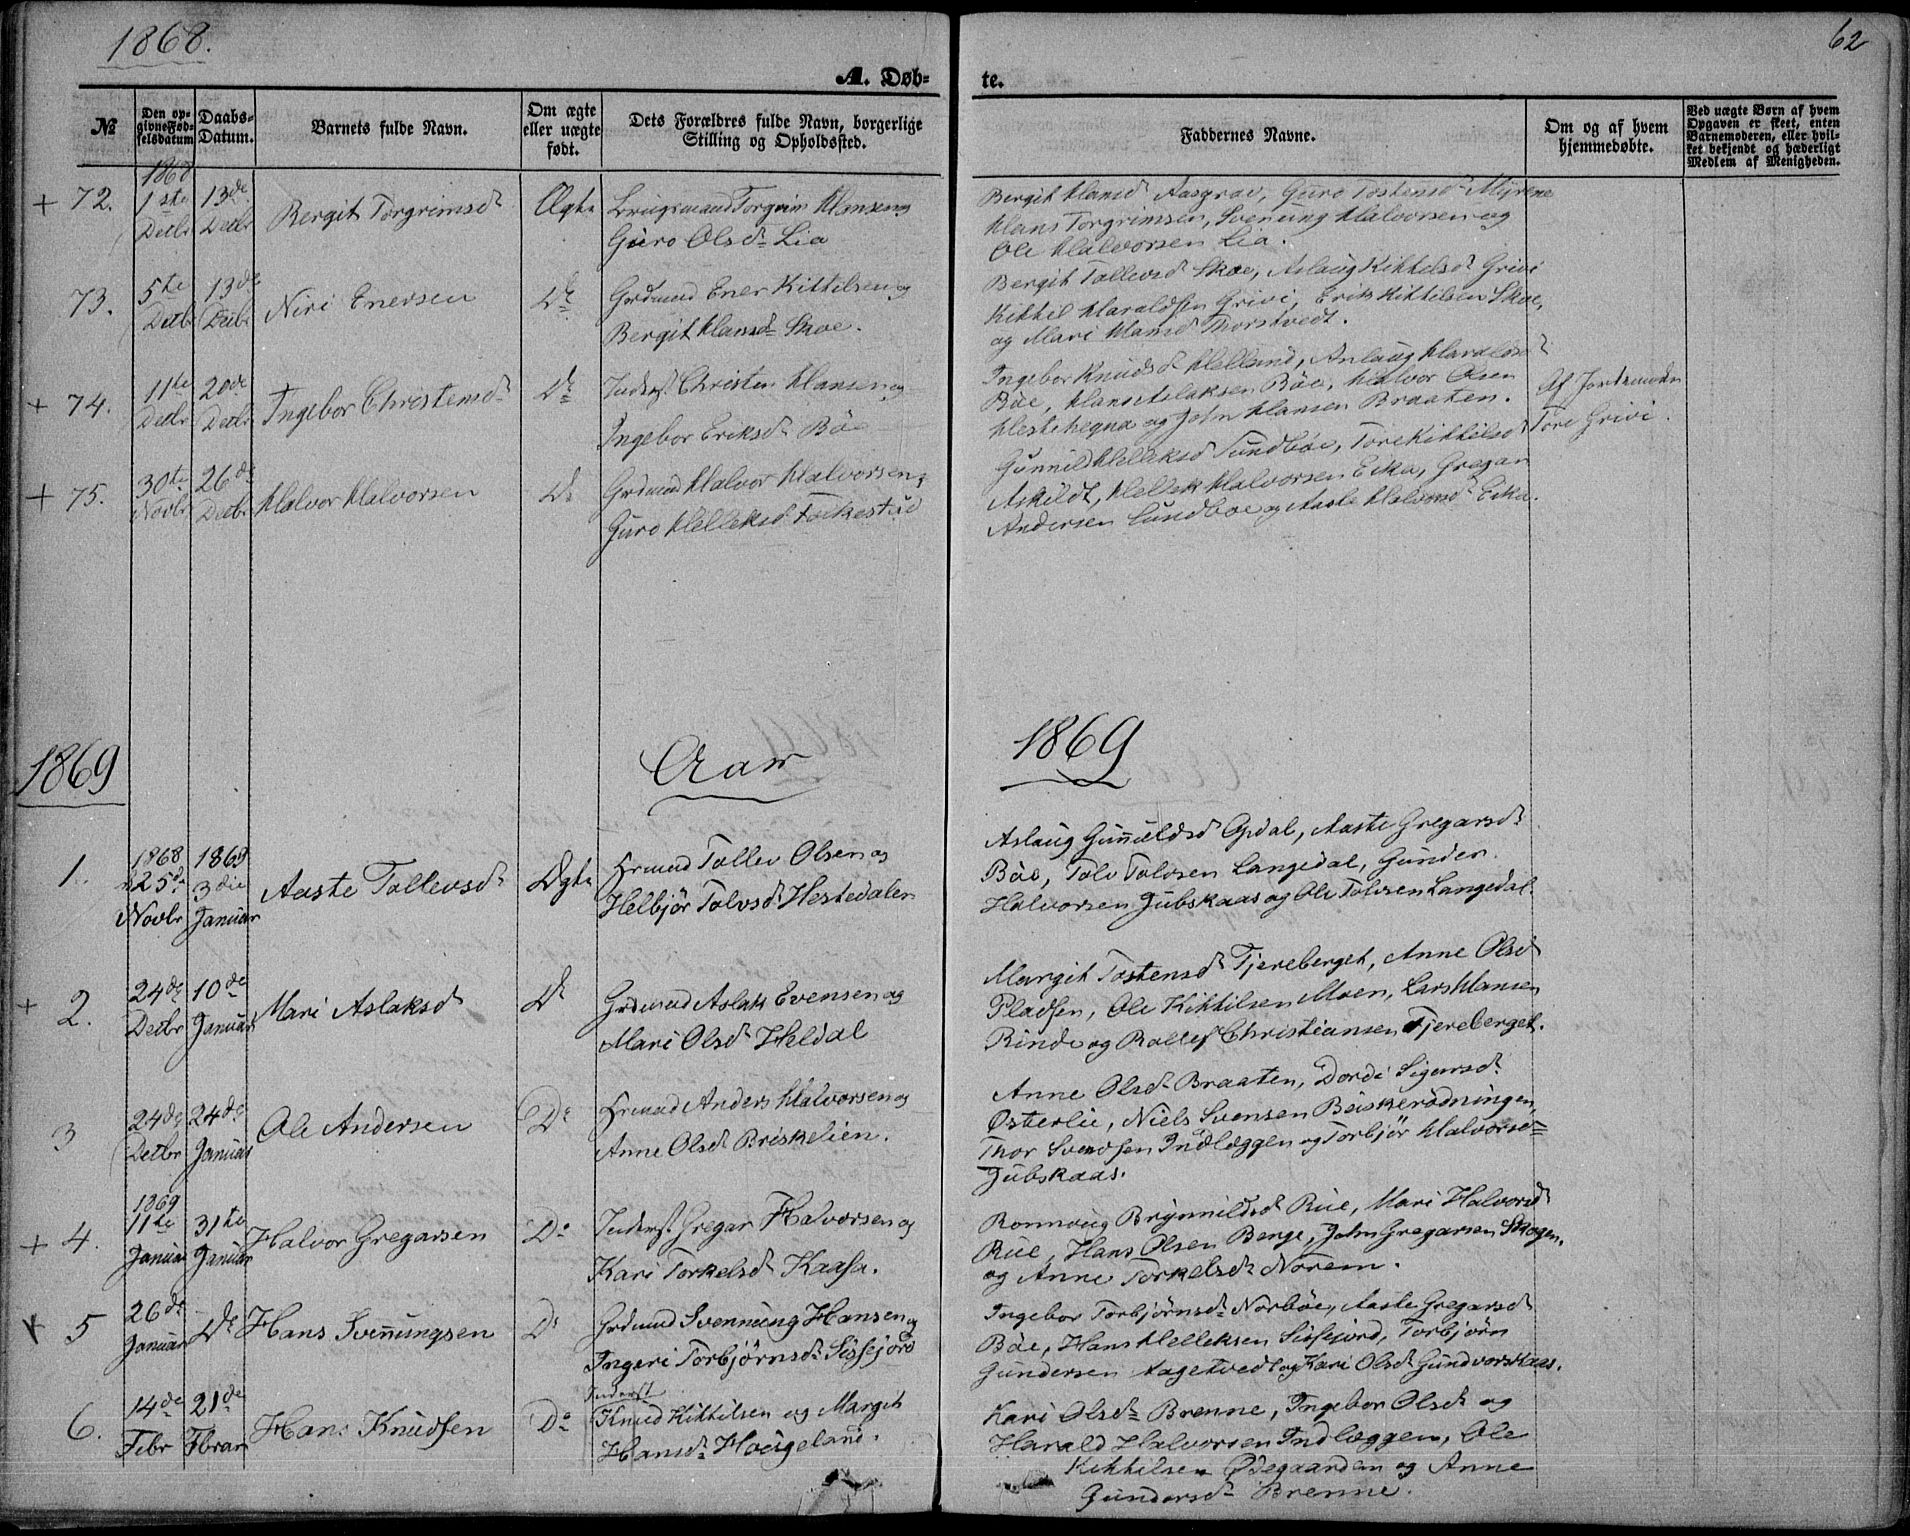 1868.
62
A. Døb-
te.
№
Den op-
givne Fød-
selsdatum
Daabs-
Datum.
Barnets fulde Navn.
Om ægte
eller uægte
født.
Dets Forældres fulde Navn, borgerlige
Stilling og Opholdssted.
Faddernes Navne.
Om og af hvem
hjemmedøbte.
Ved uægte Børn af hvem
Opgaven er skeet, enten
Barnemoderen, eller hvil-
ket bekjendt og hæderligt
Medlem af Menigheden.
1868
+ 72.
1ste
Decbr
13de
Decbr
Bergit Torgrimsd
Ægte
Brugsmand Torgrim Hansen og
Guro Olsd Lia
Bergit Hansd Aasgrav, Guro Tostensd Myrene
Hans Torgrimsen, Svenung Halvorsen og
Ole Halvorsen Lia.
73.
5te
Decbr
13de
Decbr
Niri Enersen
Do
Grdmand Ener Kittilsen og
Bergit Hansd Skoe.
Bergit Tollevsd Skoe, Aslaug Kittilsd Grivi
Kittil Haraldsen Grivi, Erik Kittilsen Skoe,
og Mari Hansd Thorstvedt.
+ 74.
11te
Decbr
20de
Decbr
Ingebor Christensd
Do
Inderst Christen Hansen og
Ingebor Eriksd Bøe
Ingebor Knudsd Helland, Anlaug Haraldsd
Bøe, Hans Aslaksen Bøe, Halvor Olsen
Hestehegna og John Hansen Braaten.
Af Jordemoder
Tore Grivi.
+ 75.
30te
Novbr
26de
Decbr
Halvor Halvorsen
Do
Grdmand Halvor Halvorsen og
Guro Helleksd Folkestad
Gunnild Helleksd Sundbøe, Tore Kittilsd
Askildt, Hellek Halvorsen Eika, Gregar
Andersen Sundboe og Aaste Halvorsd Eika.
1869
Aar
1869
1.
1868
25de
Novbr
1869
3die
Januar
Aaste Tollevsd
Ægte
Hrmand Tollev Olsen og
Helbjør Tolvsd Hestedalen
Aslaug Gunuldsd Opdal, Aaste Gregarsd
Bøe, Tolv Tolvsen Langedal, Gunder
Halvorsen Jubskaas og Ole Tolvsen Langedal
+ 2.
24de
Decbr
10de
Januar
Mari Aslaksd
Do
Grdmand Aslak Evensen og
Mari Olsd Heldal
Margit Tostensd Tjereberget, Anne Olsd
Pladsen, Ole Kittilsen Moen, Lars Hansen
Rinde og Rollef Christiansen Tjereberget.
3
24de
Decbr
24de
Januar
Ole Andersen
Do
Hrmand Anders Halvorsen og
Anne Olsd Briskelien.
Anne Olsd Braaten, Dorde Sigursd
Østerlie, Niels Svensen Beiskerødningen,
Thor Svendsen Indlæggen og Torbjør Halvorsd
Jubskaas.
+ 4.
1869
11te
Januar
31te
Januar
Halvor Gregarsen
Do
Inderst Gregar Halvorsen og
Kari Torkelsd Kaasa.
Ronnoug Brynnildsd Rue, Mari Halvorsd
Rue, Hans Olsen Berge, John Gregarsen Skogen.
og Anne Torkelsd Norem.
+ 5
26de
Januar
Do
Hans Svennungsen
Do
Grdmand Svennung Hansen og
Ingeri Torbjørnsd Sissejord
Ingebor Torbjørnsd Norbøe, Aaste Gregarsd
Bøe, Hans Helleksen Sissejord, Torbjørn
Gundersen Aagetvedt og Kari Olsd Gundvorskaas.
6.
14de
Febr
21de
Fbrar
Hans Knudsen
Do
Inderst
Knud Kittilsen og Margit
Hansd Haugeland.
Kari Olsd Brenne, Ingebor Olsd og
Harald Halvorsen Indlæggen, Ole
Kittilsen Ødegaarden og Anne
Gundersd Brenne.